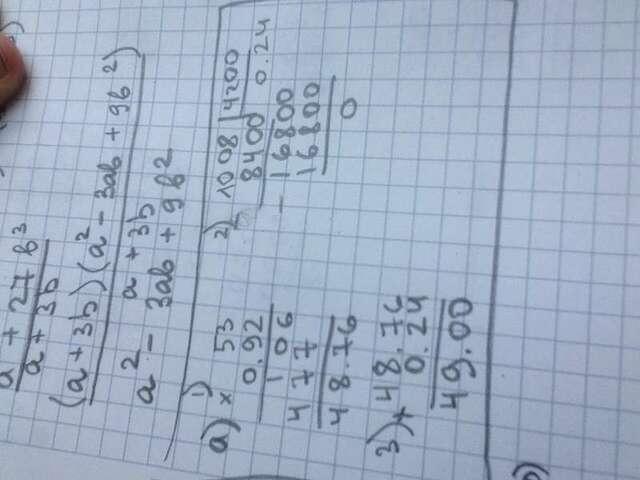 a + 27b³
a + 3b
(a + 3b)(a² - 3ab + 9b²)
a + 3b
a² - 3ab + 9b²
a) 1)
× 53
0.92
106
477
48.76
2) 1008 | 4200
8400 0.24
- 16800
16800
0
3) + 48.76
0.24
49.00